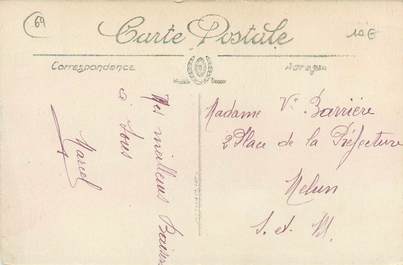 69
10 E
Carte Postale
Correspondance
Adresse
Mes meilleurs Baisers
à tous
Marcel
Madame Ve Barrière
2 Place de la Préfecture
Melun
S. et M.